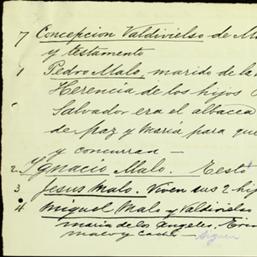 7 Concepcion Valdivielso de M
y testamento
1 Pedro Malo, marido de la
Herencia de los hijos
Salvador era el albacea
de paz y Maria para que
y concurrad —
2 Ygnacio Malo. Testó
3 Jesus Malo. Viven sus 2 hij
4 Miguel Malo y Valdivielso
maria de los Angeles,
malo y